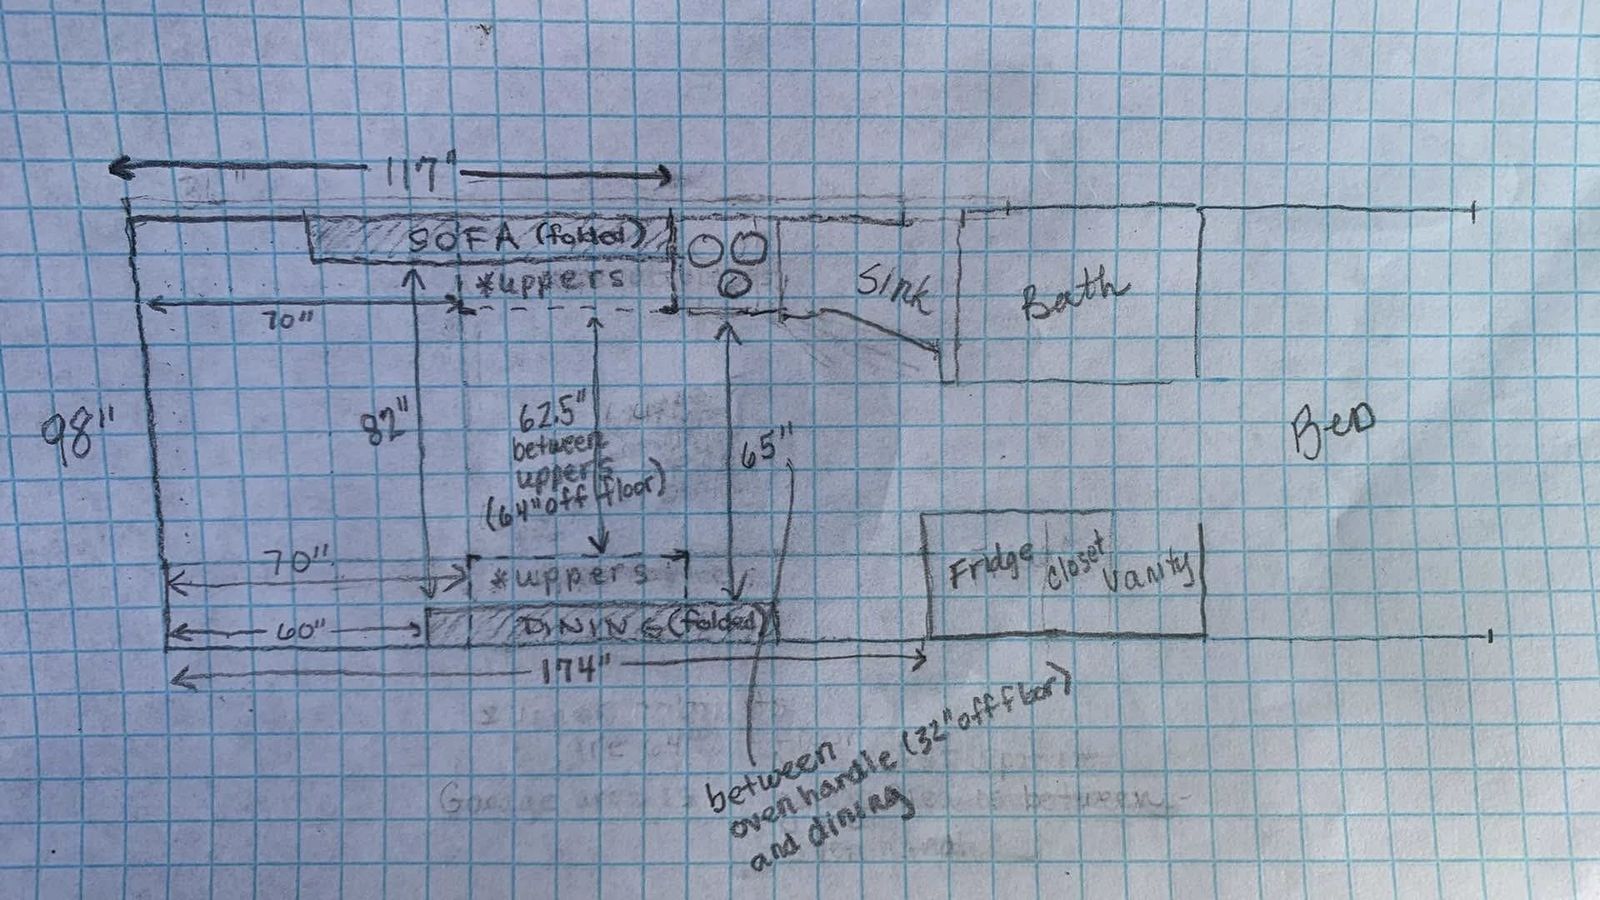 117"
SOFA (folded)
*uppers
70"
Sink
Bath
98"
82"
62.5"
between
uppers
(64" off floor)
65"
Bed
70"
*uppers
Fridge
closet
Vanity
60"
DINING (folded)
174"
between
oven handle (32" off floor)
and dining